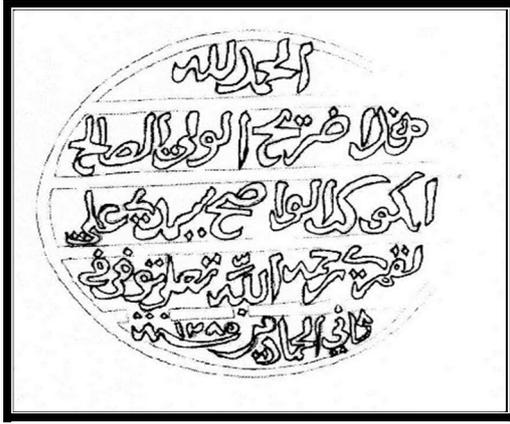 الحمد لله
هذا ضريح الولي الصالح
الكوكد الواضح سيدي علي
رحمه الله تعلى توفي في
ثاني الجمادين سنة